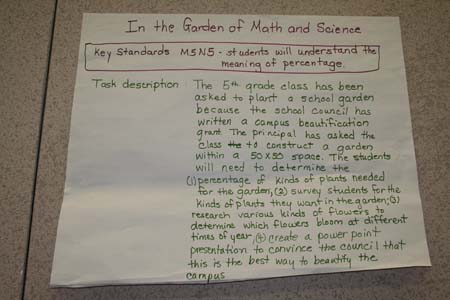 In the Garden of Math and Science
Key Standards M5N5 - students will understand the
meaning of percentage.
Task description
The 5th grade class has been
asked to plant a school garden
because the school council has
written a campus beautification
grant. The principal has asked the
class the to construct a garden
within a 50x50 space. The students
will need to determine the
(1) percentage of kinds of plants needed
for the garden, (2) survey students for the
kinds of plants they want in the garden; (3)
research various kinds of flowers to
determine which flowers bloom at different
times of year, (4) create a power point
presentation to convince the council that
this is the best way to beautify the
campus